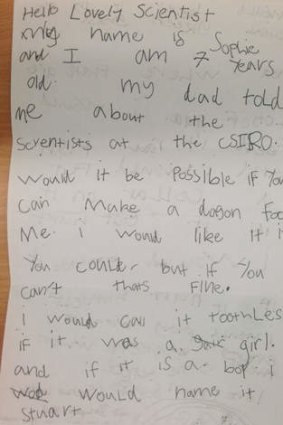 Hello Lovely Scientist
my name is Sophie
and I am 7 Years
old. my dad told
me about the
Scientists at the CSIRO.
Would it be Possible if You
can Make a dagon Foe
Me. i would like it i
You could, but if You
can't thats Fine.
i would call it toothles
if it was a girl.
and if it is a boy i
would name it
Stuart